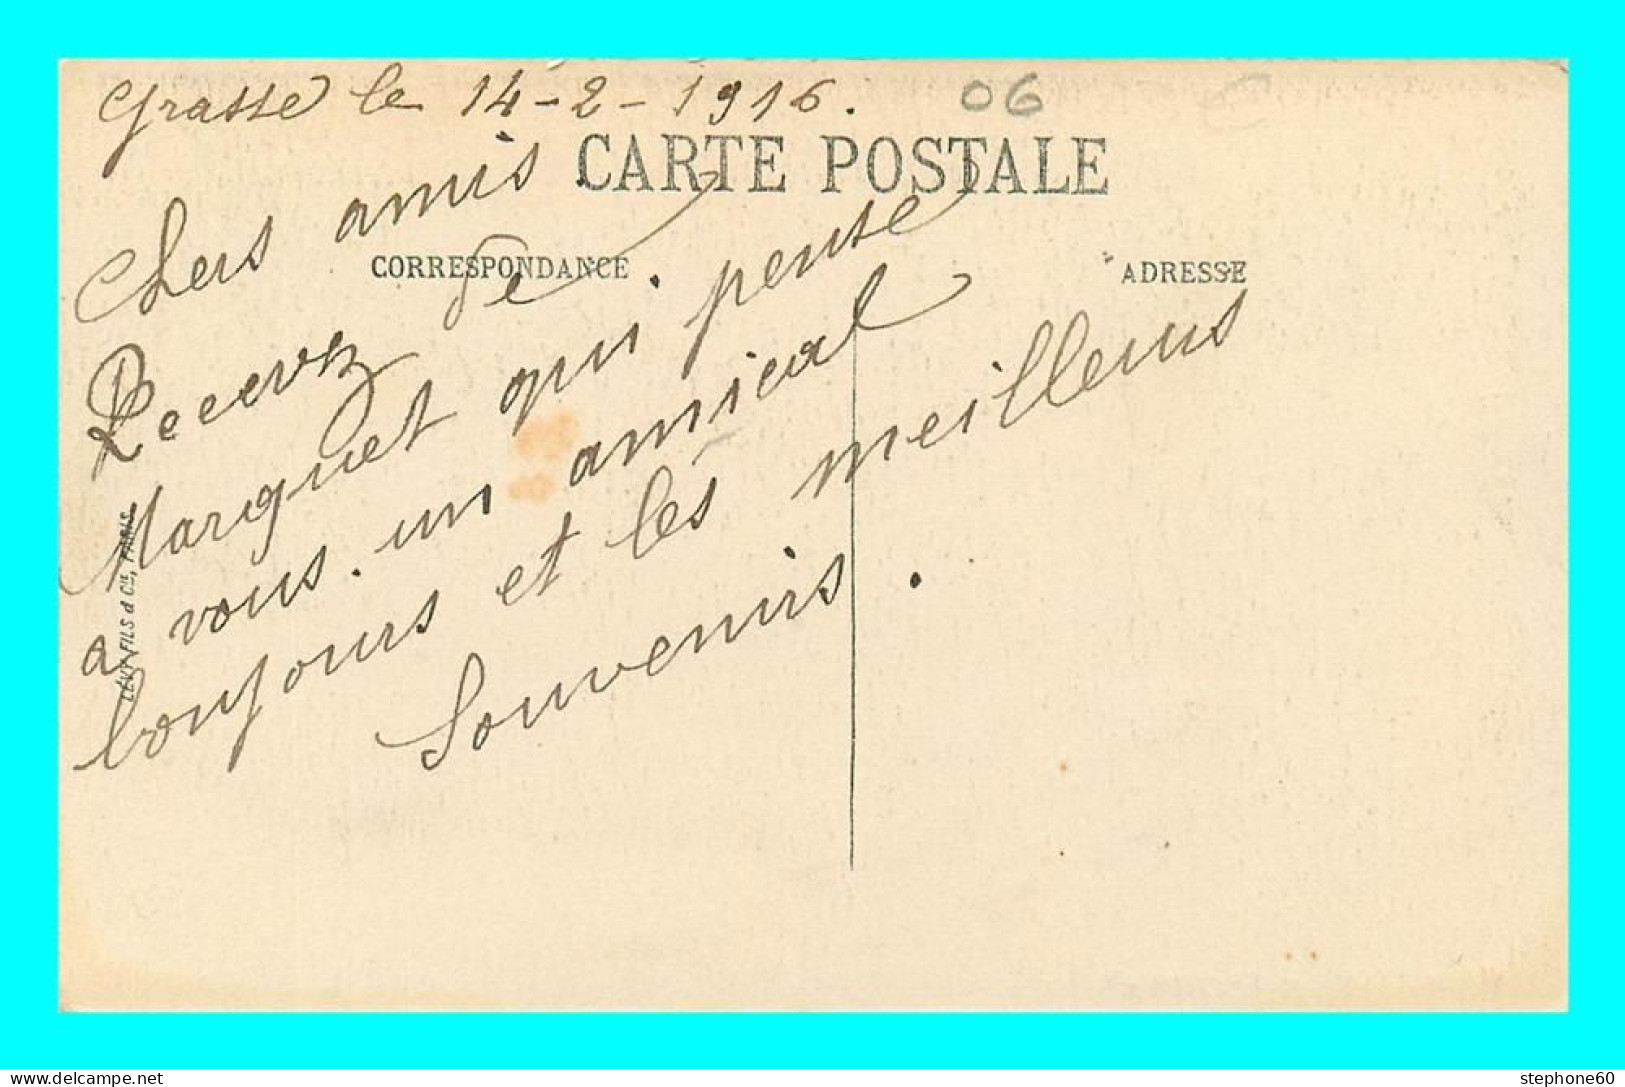 Grasse le 14-2-1916.
06
CARTE POSTALE
CORRESPONDANCE
ADRESSE
Chers amis.
Recevez de.
Marquet qui pense
a vous. un amical
toujours et les meilleurs
souvenirs.
LÉVY FILS & Cie, PARIS
stephone60